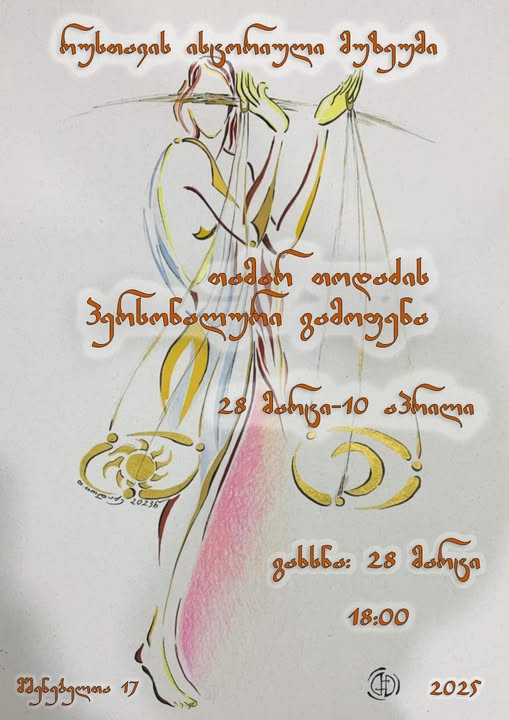 რუსთავის ისტორიული მუზეუმი
თამარ თოდაძის
პერსონალური გამოფენა
28 მარტი-10 აპრილი
გახსნა: 28 მარტი
18:00
მშენებელთა 17
2025